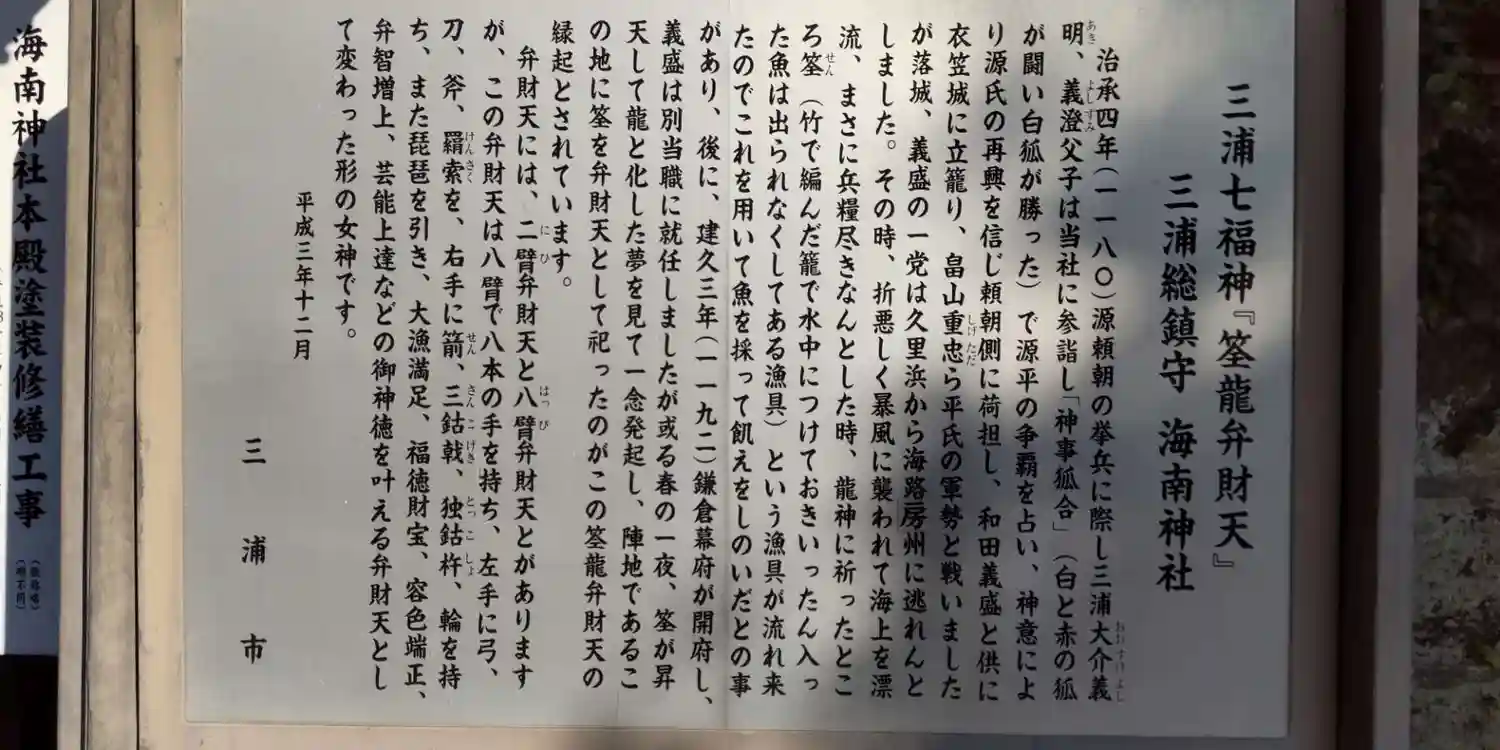 三浦七福神『筌龍弁財天』
三浦総鎮守 海南神社
治承四年(一一八〇)源頼朝の挙兵に際し三浦大介義
明、義澄父子は当社に参詣し「神事狐合」(白と赤の狐
が闘い白狐が勝った)で源平の争覇を占い、神意によ
り源氏の再興を信じ頼朝側に荷担し、和田義盛と供に
衣笠城に立籠り、畠山重忠ら平氏の軍勢と戦いました
が落城、義盛の一党は久里浜から海路房州に逃れんと
しました。その時、折悪しく暴風に襲われて海上を漂
流、まさに兵糧尽きなんとした時、龍神に祈ったとこ
ろ筌(竹で編んだ籠で水中につけておきいったん入っ
た魚は出られなくしてある漁具)という漁具が流れ来
たのでこれを用いて魚を採って飢えをしのいだとの事
があり、後に、建久三年(一一九二)鎌倉幕府が開府し、
義盛は別当職に就任しましたが或る春の一夜、筌が昇
天して龍と化した夢を見て一念発起し、陣地であるこ
の地に筌を弁財天として祀ったのがこの筌龍弁財天の
縁起とされています。
弁財天には、二臂弁財天と八臂弁財天とがあります
が、この弁財天は八臂で八本の手を持ち、左手に弓、
刀、斧、羂索を、右手に箭、三鈷戟、独鈷杵、輪を持
ち、また琵琶を引き、大漁満足、福徳財宝、容色端正、
弁智増上、芸能上達などの御神徳を叶える弁財天とし
て変わった形の女神です。
平成三年十二月
三浦市
海南神社本殿塗装修繕工事